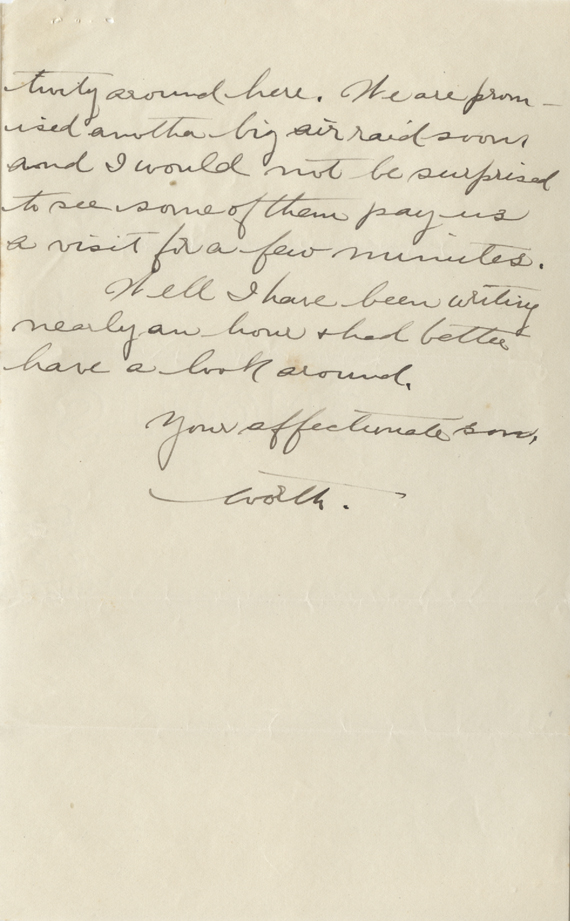 tivity around here. We are prom-
ised another big air raid soon
and I would not be surprised
to see some of them pay us
a visit for a few minutes.
Well I have been writing
nearly an hour & had better
have a look around.
Your affectionate son,
Worth.